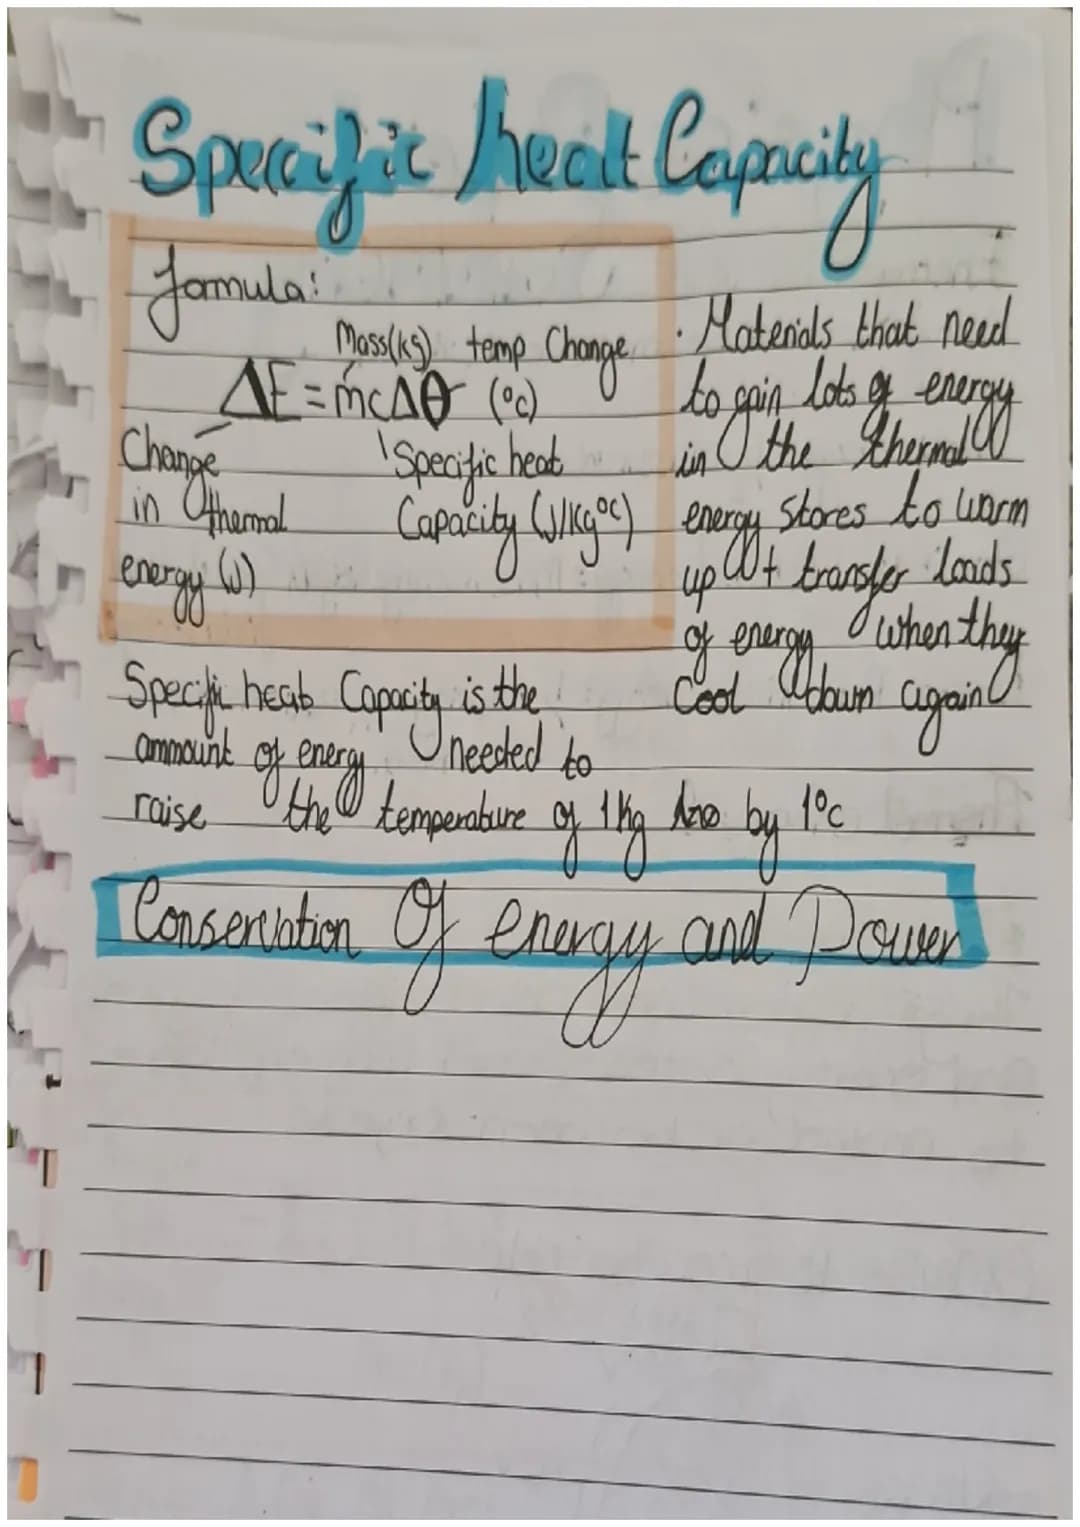 Specific heat Capacity
formula:
Mass(kg) temp Change
ΔE = mcΔθ (°c)
Change
in thermal
energy (J)
Specific heat
Capacity (J/kg°c)
· Materials that need
to gain lots of energy
in the thermal
energy stores to warm
up + transfer loads
of energy when they
Cool down again
Specific heat Capacity is the
ammount of energy needed to
raise the temperature of 1kg by 1°c
Conservation Of energy and Power